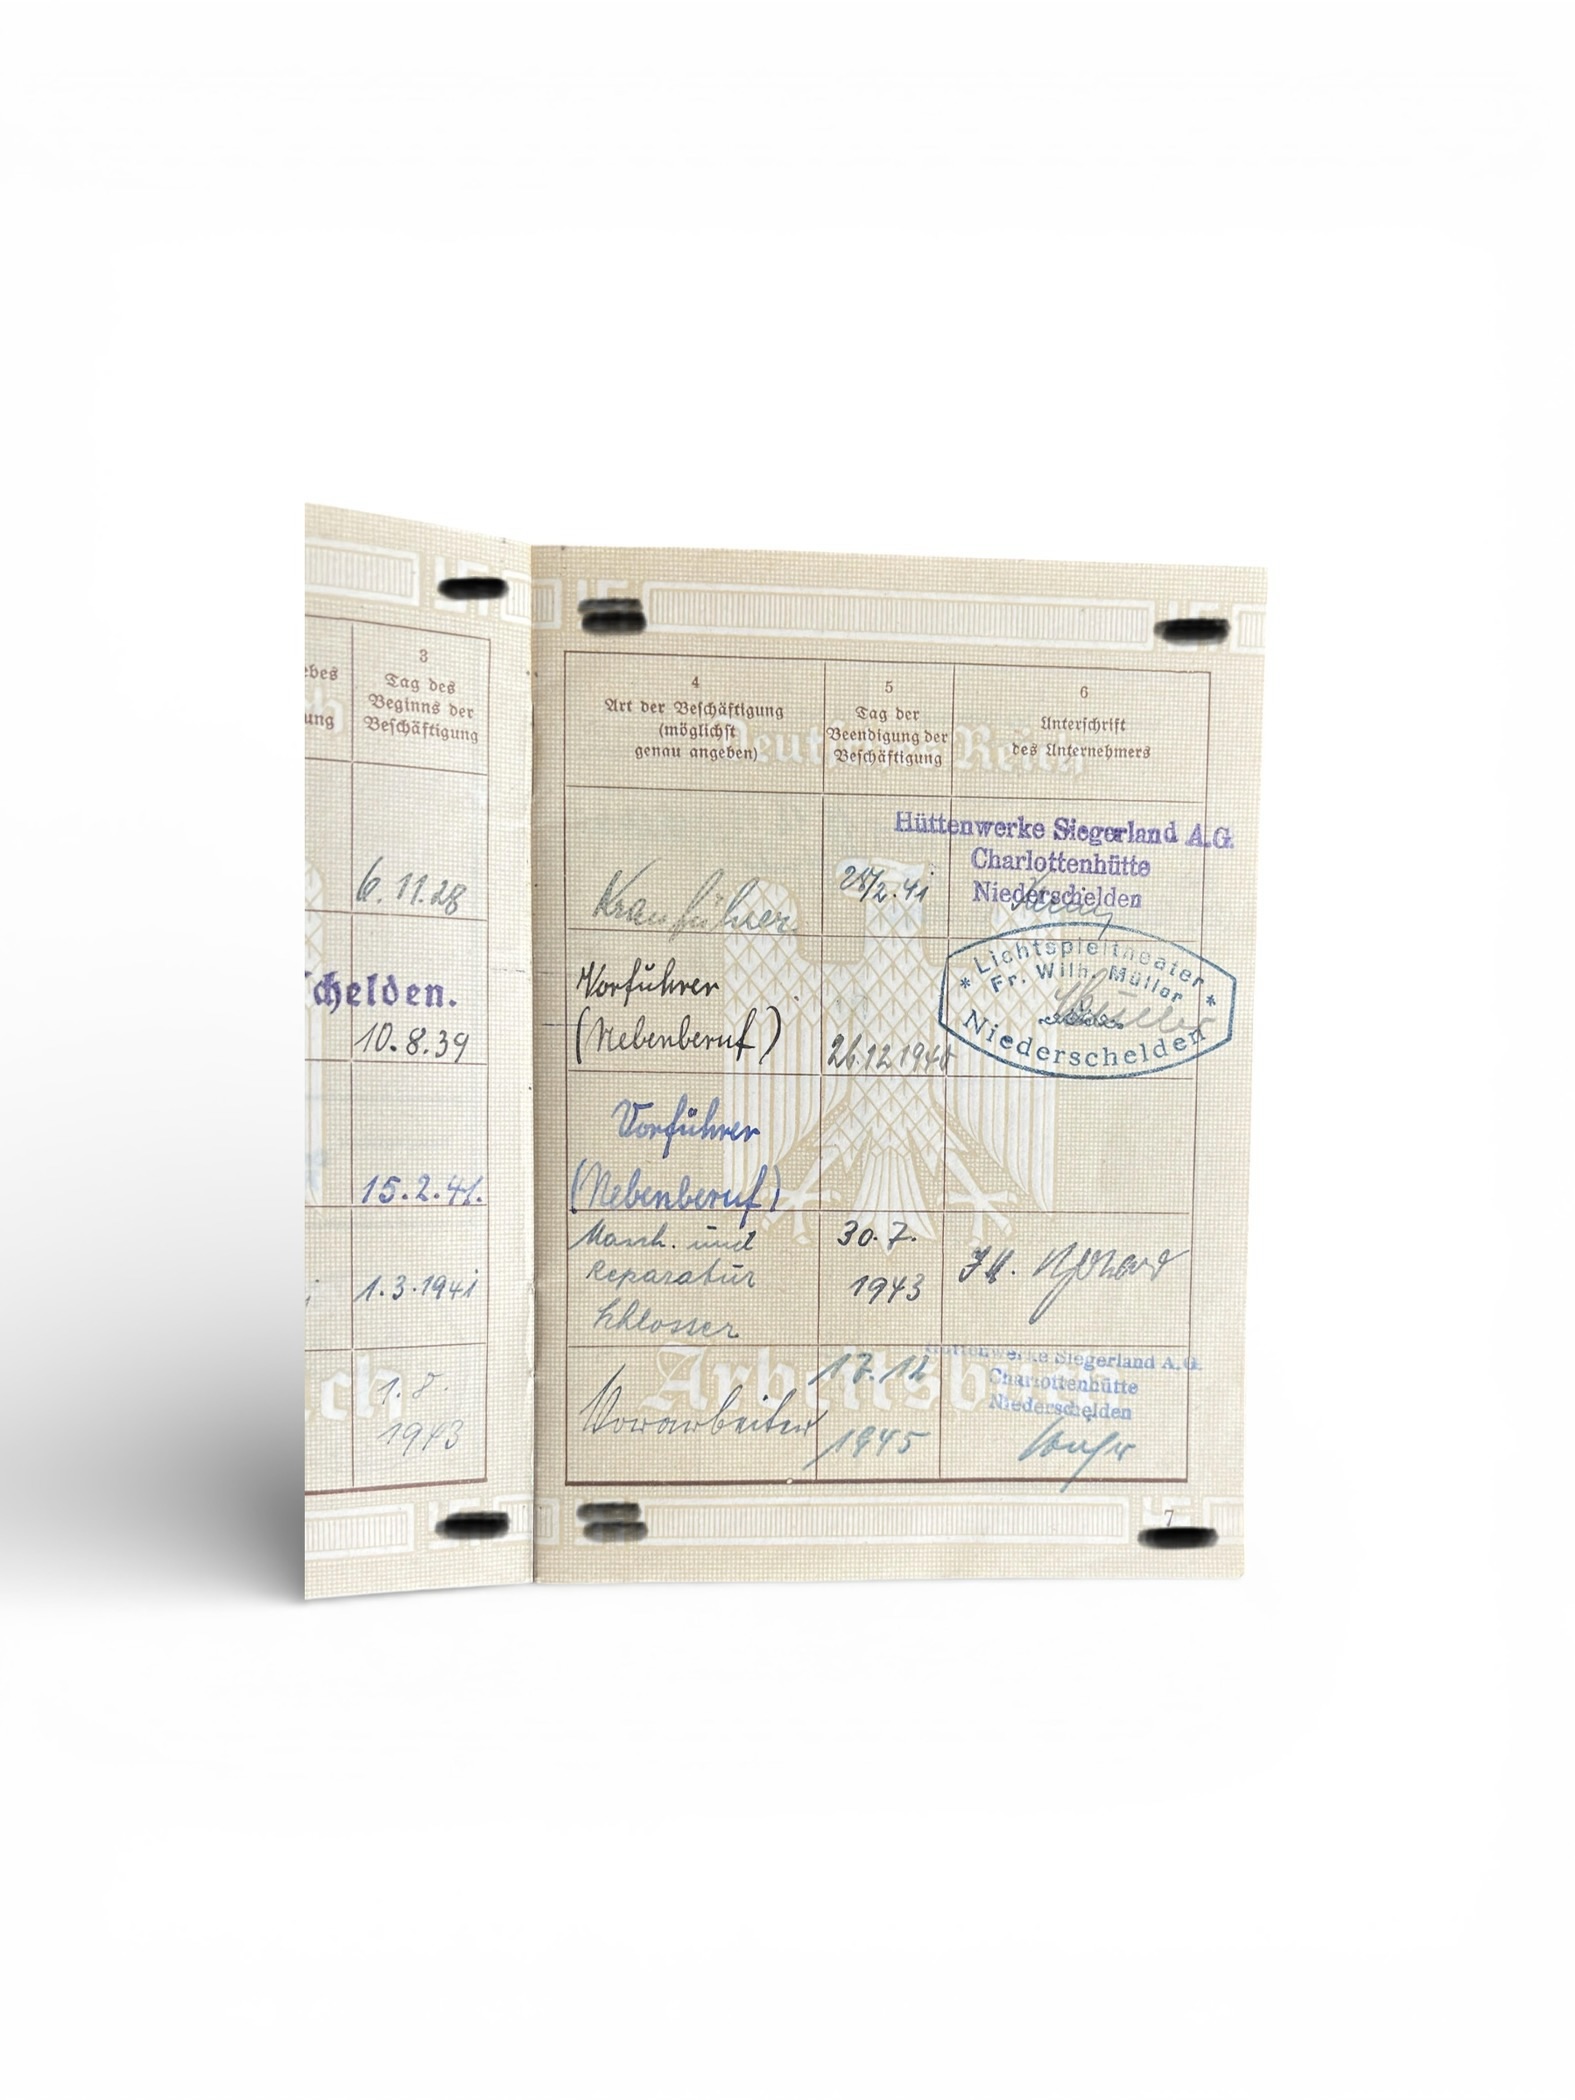 3
Tag des
Beginns der
Beschäftigung
6.11.28
chelden.
10.8.39
15.2.41.
1.3.1941
1.8.
1943
4
Art der Beschäftigung
(möglichst
genau angeben)
5
Tag der
Beendigung der
Beschäftigung
6
Unterschrift
des Unternehmers
Deutsches Reich
Kranführer
28/2.41
Hüttenwerke Siegerland A.G.
Charlottenhütte
Niederschelden
Vorführer
(Nebenberuf)
26.12.1940
* Lichtspieltheater *
Fr. Wilh. Müller
Niederschelden
Vorführer
(Nebenberuf)
Masch. und
Reparatur
Schlosser
30.7.
1943
Vorarbeiter
17.12
1945
Hüttenwerke Siegerland A.G.
Charlottenhütte
Niederschelden
Arbeitsbuch
7